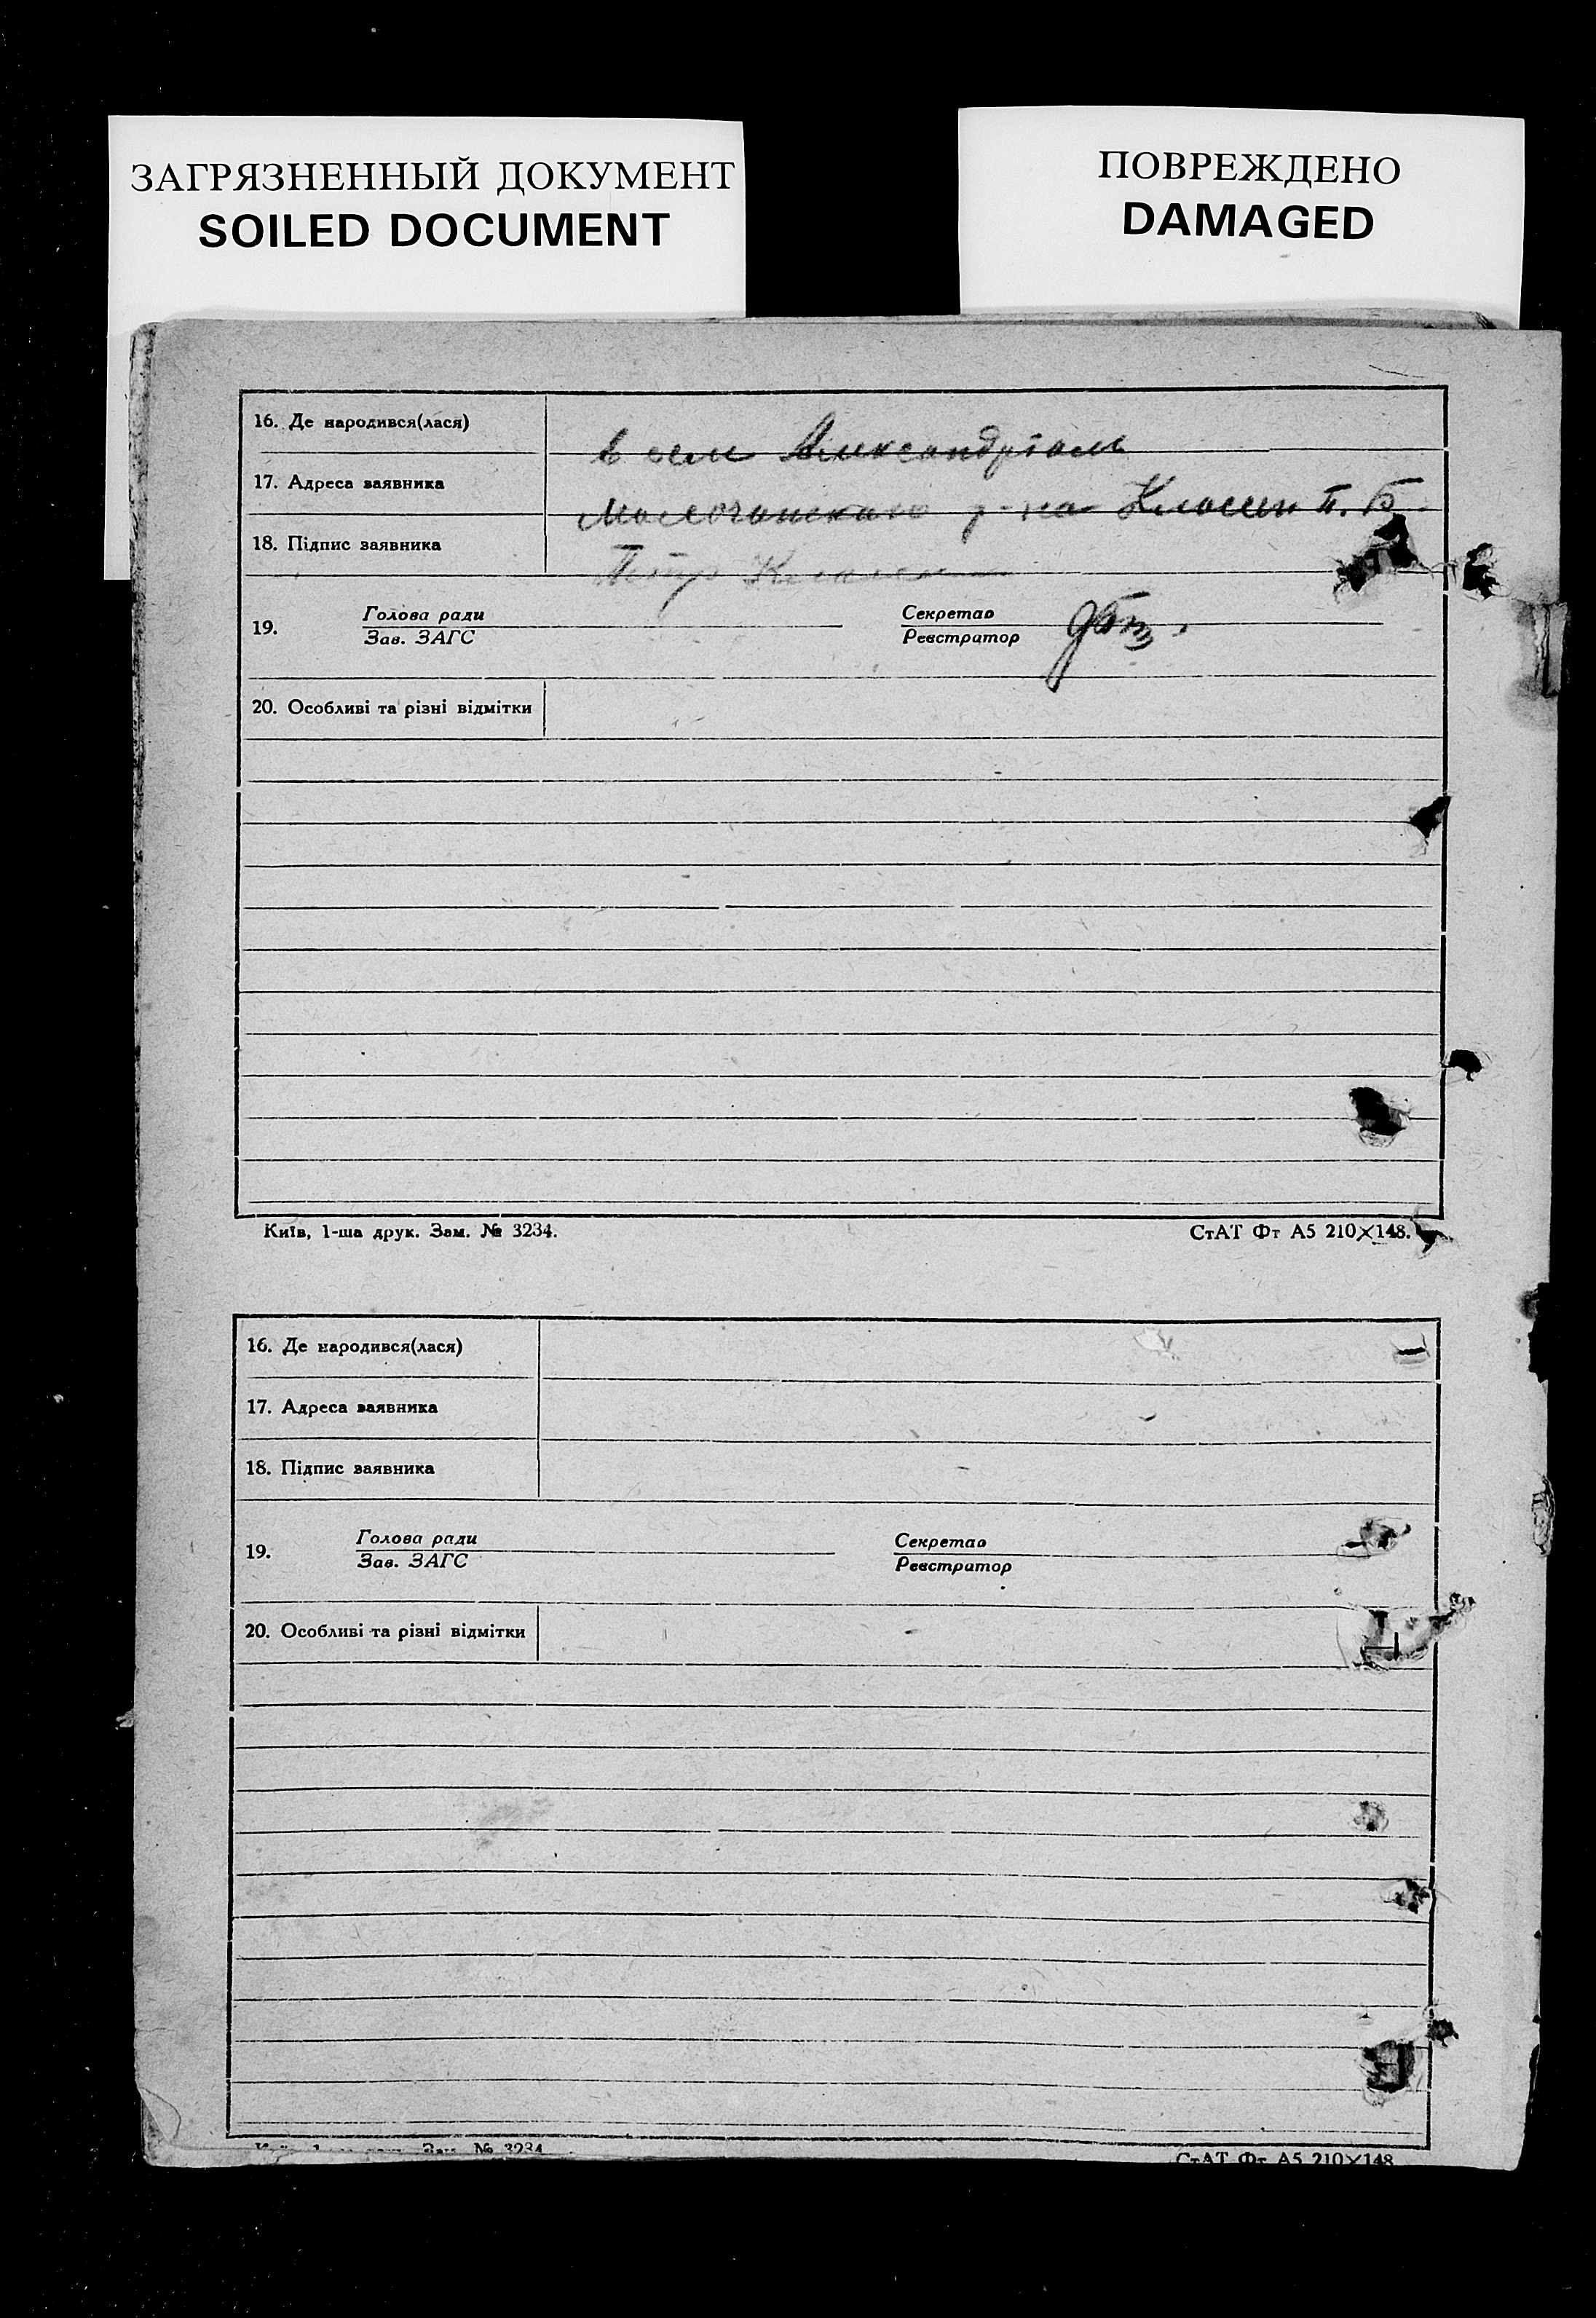 ЗАГРЯЗНЕННЫЙ ДОКУМЕНТ
SOILED DOCUMENT
ПОВРЕЖДЕНО
DAMAGED
16. Де народився(лася)
в селе Александрталь
17. Адреса заявника
Молочанского р-на Классен П. Б.
18. Підпис заявника
Петр
19.
Голова ради
Зав. ЗАГС
Секретар
Реєстратор
20. Особливі та різні відмітки
Київ, 1-ша друк. Зам. № 3234.
СтАТ Фт А5 210×148.
16. Де народився(лася)
17. Адреса заявника
18. Підпис заявника
19.
Голова ради
Зав. ЗАГС
Секретар
Реєстратор
20. Особливі та різні відмітки
Зам. № 3234
СтАТ Фт А5 210×148